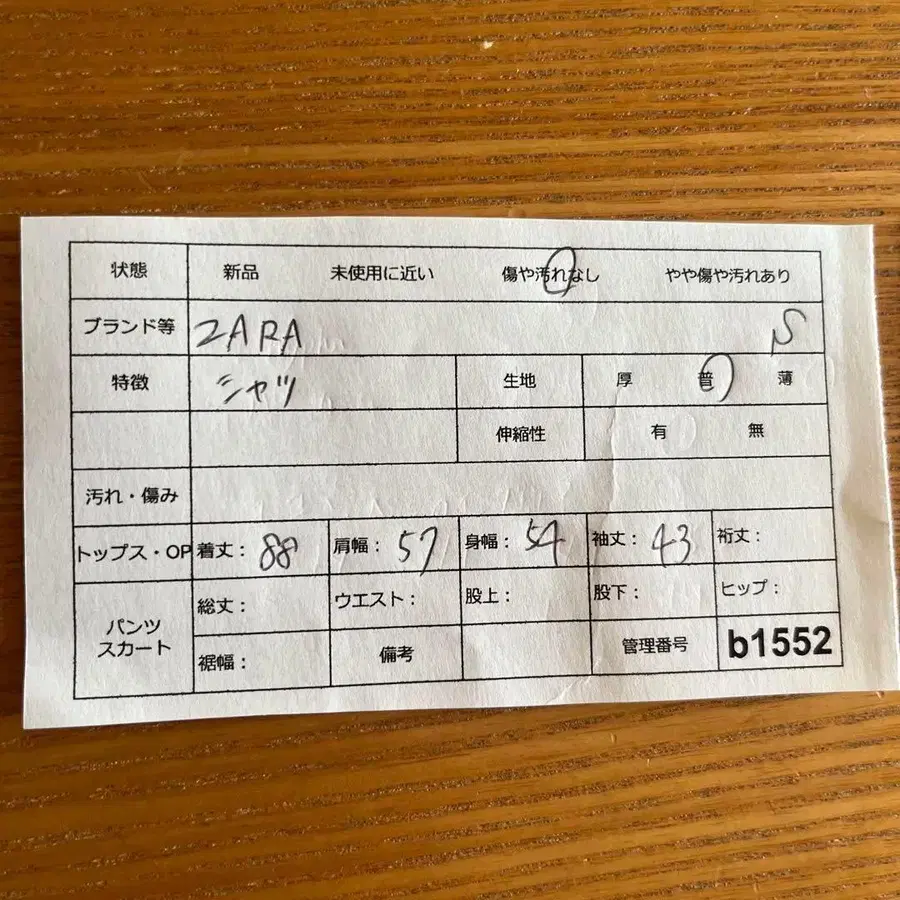 状態 新品 未使用に近い 傷や汚れなし やや傷や汚れあり
ブランド等 ZARA S
特徴 シャツ 生地 厚 普 薄
伸縮性 有 無
汚れ・傷み
トップス・OP 着丈: 88 肩幅: 57 身幅: 54 袖丈: 43 裄丈:
パンツ スカート 総丈: ウエスト: 股上: 股下: ヒップ:
裾幅: 備考 管理番号 b1552